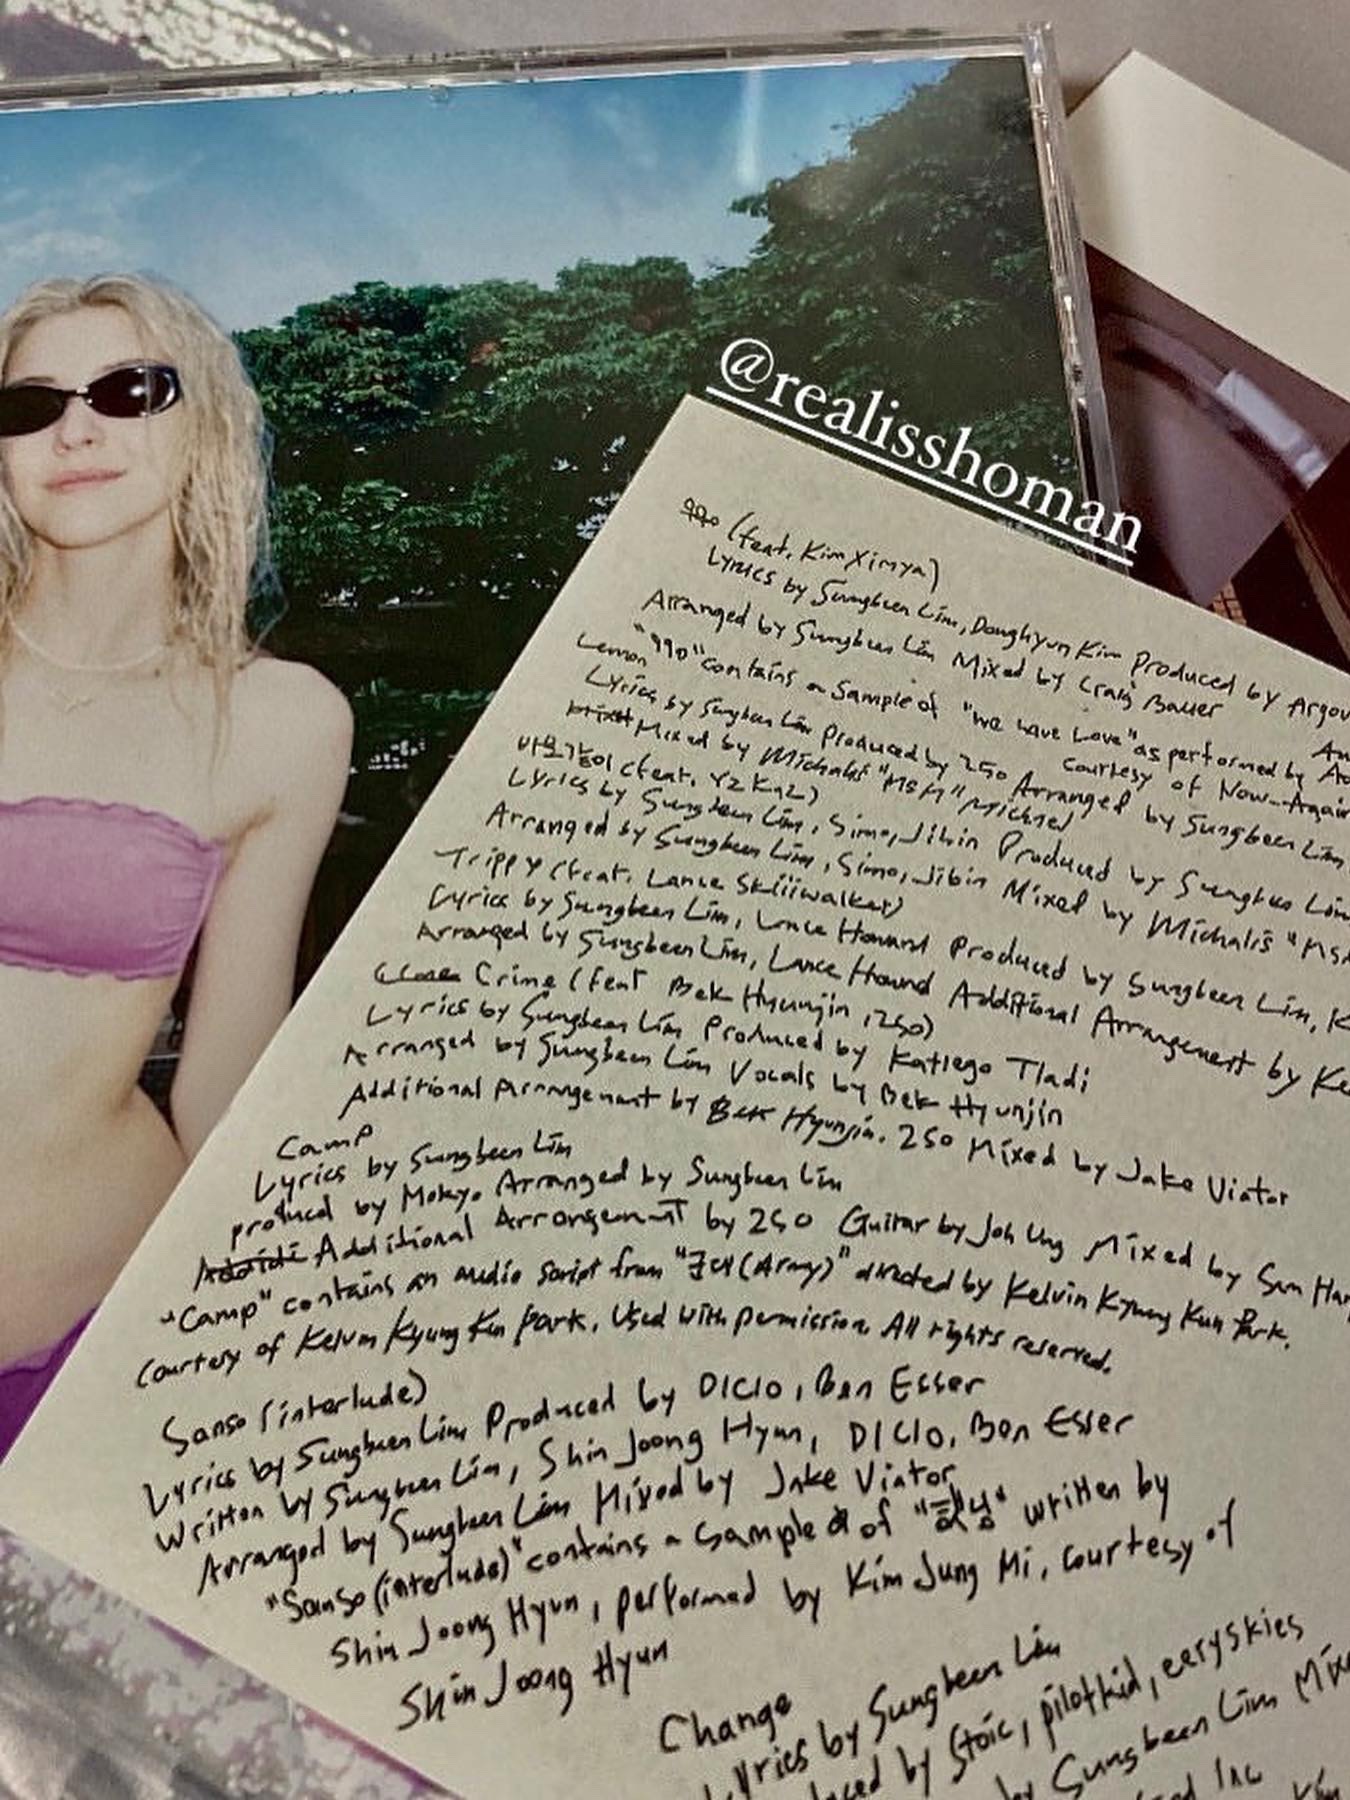 @realisshoman
990 (feat. Kim Ximya)
Lyrics by Sungbeen Lim, Donghyun Kim Produced by
Arranged by Sungbeen Lim Mixed by Craig Bauer
"990" contains a Sample of "We Have Love" as performed by
Courtesy of Now-Again
Lemon
Lyrics by Sungbeen Lim Produced by 250 Arranged by Sungbeen Lim
Mixed by Michalis "MsM" Michael
바모가중이 (feat. Y2K92)
Lyrics by Sungbeen Lim, Simo, Jibin Produced by Sungbeen Lim
Arranged by Sungbeen Lim, Simo, Jibin Mixed by Michalis "MsM
Trippy (feat. Lance Skiiiwalker)
Lyrics by Sungbeen Lim, Lance Howard Produced by Sungbeen Lim,
Arranged by Sungbeen Lim, Lance Howard Additional Arrangement by
Crime (feat Bek Hyunjin, 250)
Lyrics by Sungbeen Lim Produced by Katlego Tladi
Arranged by Sungbeen Lim Vocals by Bek Hyunjin
Additional Arrangement by Bek Hyunjin, 250 Mixed by Jake Viator
Camp
Lyrics by Sungbeen Lim
produced by Mokyo Arranged by Sungbeen Lim
Additional Arrangement by 250 Guitar by Joh Ung Mixed by
"Camp" contains an audio Script from "군대(Army)" directed by Kelvin Kyung Kun Park.
Courtesy of Kelvin Kyung Kun Park. Used with permission. All rights reserved.
Sanso (interlude)
Lyrics by Sungbeen Lim Produced by DICIO, Ben Esser
Written by Sungbeen Lim, Shin Joong Hyun, DICIO, Ben Esser
Arranged by Sungbeen Lim Mixed by Jake Viator
"Sanso (interlude)" contains a sample of "햇님" written by
Shin Joong Hyun, performed by Kim Jung Mi, Courtesy of
Shin Joong Hyun
Change
Lyrics by Sungbeen Lim
by Stoic, pilotkid, eeryskies
by Sungbeen Lim
Inc